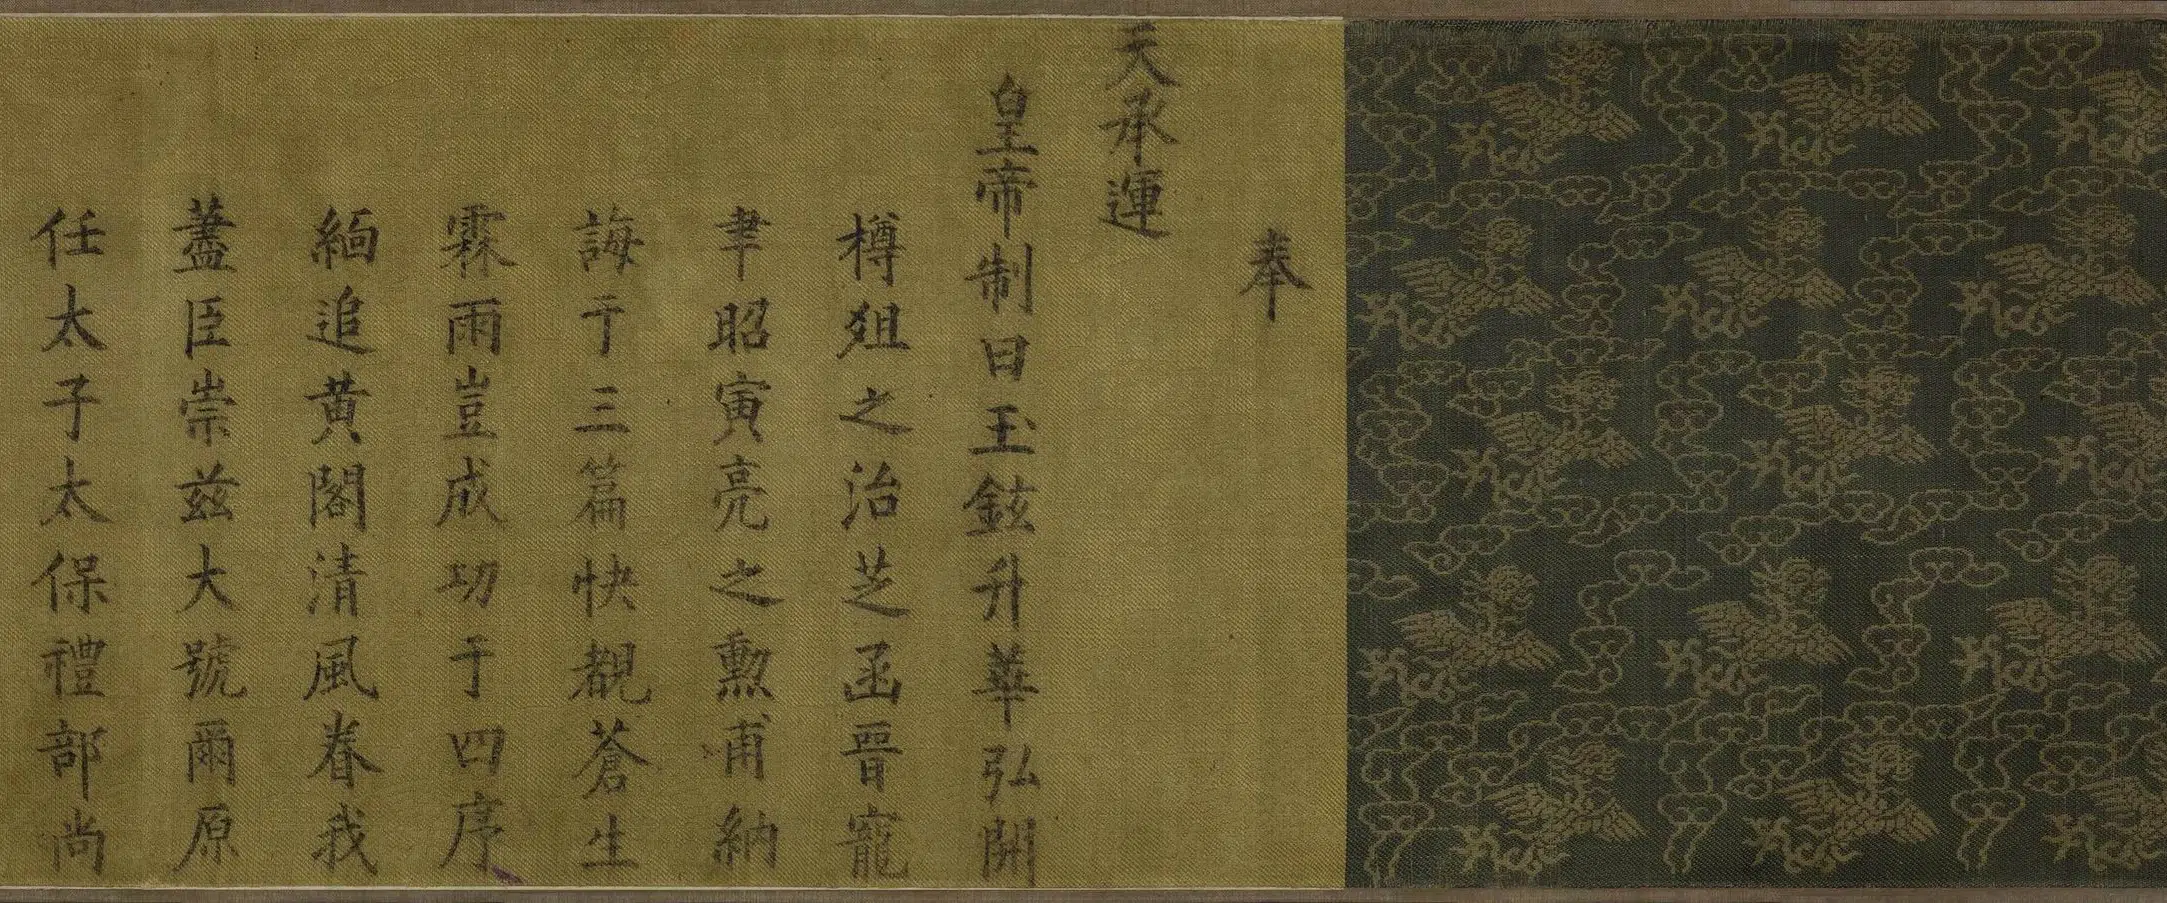 奉
天承運
皇帝制曰玉鉉升華弘開
樽俎之治芝函晉寵
聿昭寅亮之勳甫納
誨于三篇快覩蒼生
霖雨豈成功于四序
緬追黃閣清風眷我
藎臣崇茲大號爾原
任太子太保禮部尚